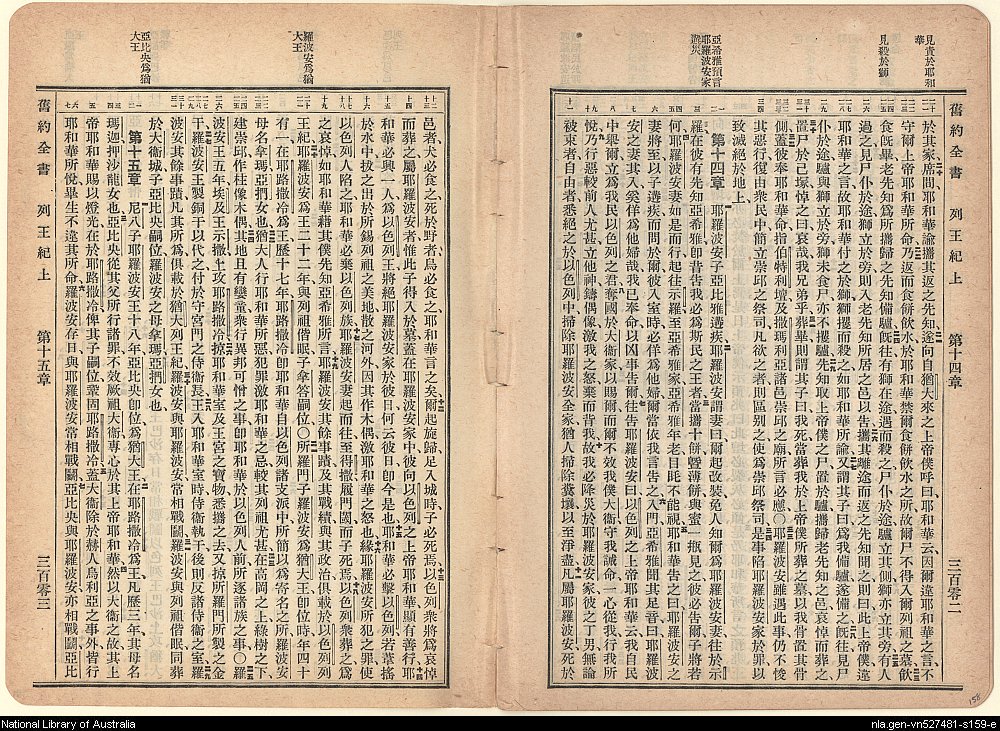 見責於耶和華
見殺於獅
亞希雅預言耶羅波安家遘災
舊約全書 列王紀上 第十四章 三百零二
於其家席間耶和華諭攜其返之先知遂向自猶大來之上帝僕呼曰耶和華云因爾違耶和華之言不
守爾上帝耶和華所命乃返而食餅飲水於耶和華禁爾食餅飲水之所故爾尸不得入爾列祖之墓飲
食旣畢老先知爲所攜歸之先知備驢旣往有獅在途遇而殺之尸仆於途驢立其側獅亦立其旁有人
過之見尸仆於途獅立於旁則入老先知所居之邑以告攜其離途而返之先知聞之則曰此上帝僕違
耶和華之言故耶和華付之於獅獅攫而殺之如耶和華所諭又謂其子曰爲我備驢遂備之旣往見尸
仆於途驢與獅立於旁獅未食尸亦不攫驢先知取上帝僕之尸置於驢攜歸老先知之邑哀悼而葬之
置尸於己塚悼之曰哀哉我兄弟乎葬畢則謂其子曰我死當葬我於上帝僕所葬之墓以我骨置其骨
側蓋彼奉耶和華命指伯特利壇及撒瑪利亞諸邑崇邱之廟所言必應○耶羅波安雖遇此事仍不悛
其惡行復由衆民中簡立崇邱之祭司凡欲之者則區别之使爲崇邱祭司是事陷耶羅波安家於罪以
致滅絕於地上
第十四章 耶羅波安子亞比雅遘疾耶羅波安謂妻曰爾起改裝免人知爾爲耶羅波安妻往於示
羅在彼有先知亞希雅卽昔告我必爲斯民之王者當攜十餅曁薄餅與蜜一瓶見之彼必告爾子將若
何耶羅波安妻如是而行起往示羅至亞希雅家亞希雅年老目眊不能視耶和華告之曰耶羅波安之
妻將至以子遘疾而問於爾彼入室時必佯爲他婦爾當依我言告之入門亞希雅聞其足音曰耶羅波
安之妻其入矣佯爲他婦哉我已奉命以凶事告爾往告耶羅波安曰以色列之上帝耶和華云我自民
中舉爾立爲我民以色列之君奪國於大衛家以賜爾而爾不效我僕大衛守我誡命一心從我行我所
悅乃行惡較前人尤甚立他神鑄偶像激我之怒棄我而背我故我必降災於耶羅波安家彼之丁男無論
被束者自由者悉絕之於以色列中掃除耶羅波安全家猶人掃除糞壤以至淨盡凡屬耶羅波安死於
羅波安爲猶大王
亞比央爲猶大王
邑者犬必食之死於野者鳥必食之耶和華言之矣爾起旋歸足入城時子必死焉以色列衆將爲哀悼
而葬之屬耶羅波安者惟此子得入於墓蓋在耶羅波安家中彼向以色列之上帝耶和華顯有善行耶
和華必興一人爲以色列王將絕耶羅波安家於彼日何云彼日卽今是也耶和華必擊以色列若葦搖
於水中拔之出於所錫列祖之美地散之河外因其作木偶激耶和華之怒也緣耶羅波安所犯之罪使
以色列人陷之耶和華必棄以色列族耶羅波安妻起而往至得撒履門閾而子死焉以色列衆葬之爲
之哀悼如耶和華藉其僕先知亞希雅所言耶羅波安其餘事蹟及其戰績與其政治俱載於以色列列
王紀耶羅波安爲王二十二年與列祖偕眠子拿答嗣位○所羅門子羅波安爲猶大王卽位時年四十
有一在耶路撒冷爲王歷十七年耶路撒冷卽耶和華自以色列諸支派中所簡以爲寄名之所羅波安
母名拿瑪亞捫女也猶大人行耶和華所惡犯罪激耶和華之忌較其列祖尤甚在高岡之上綠樹之下
建崇邱作柱像木偶其地且有孌童衆行異邦可憎之事卽耶和華於以色列人前所逐諸族之事○羅
波安王五年埃及王示撒上攻耶路撒冷掠耶和華室及王宮之寶物悉攜之去又掠所羅門所製之金
干羅波安王製銅干以代之付於守宮門之侍衛長王入耶和華室時侍衛執干後則反諸侍衛之室羅
波安其餘事蹟凡其所爲俱載於猶大列王紀羅波安耶羅波安常相戰鬭羅波安與列祖偕眠同葬
於大衛城子亞比央嗣位羅波安之母拿瑪亞捫女也
第十五章 尼八子耶羅波安王十八年亞比央卽位爲猶大王在耶路撒冷爲王凡歷三年其母名
瑪迦押沙龍女也亞比央從其父所行諸罪不效厥祖大衛專心於其上帝耶和華然以大衛之故其上
帝耶和華賜以燈光在於耶路撒冷俾其子嗣位鞏固耶路撒冷蓋大衛除於赫人烏利亞之事外皆行
耶和華所悅畢生不違其所命羅波安存日與耶羅波安常相戰鬭亞比央與耶羅波安亦相戰鬭亞比
舊約全書 列王紀上 第十五章 三百零三
158
National Library of Australia
nla.gen-vn527481-s159-e